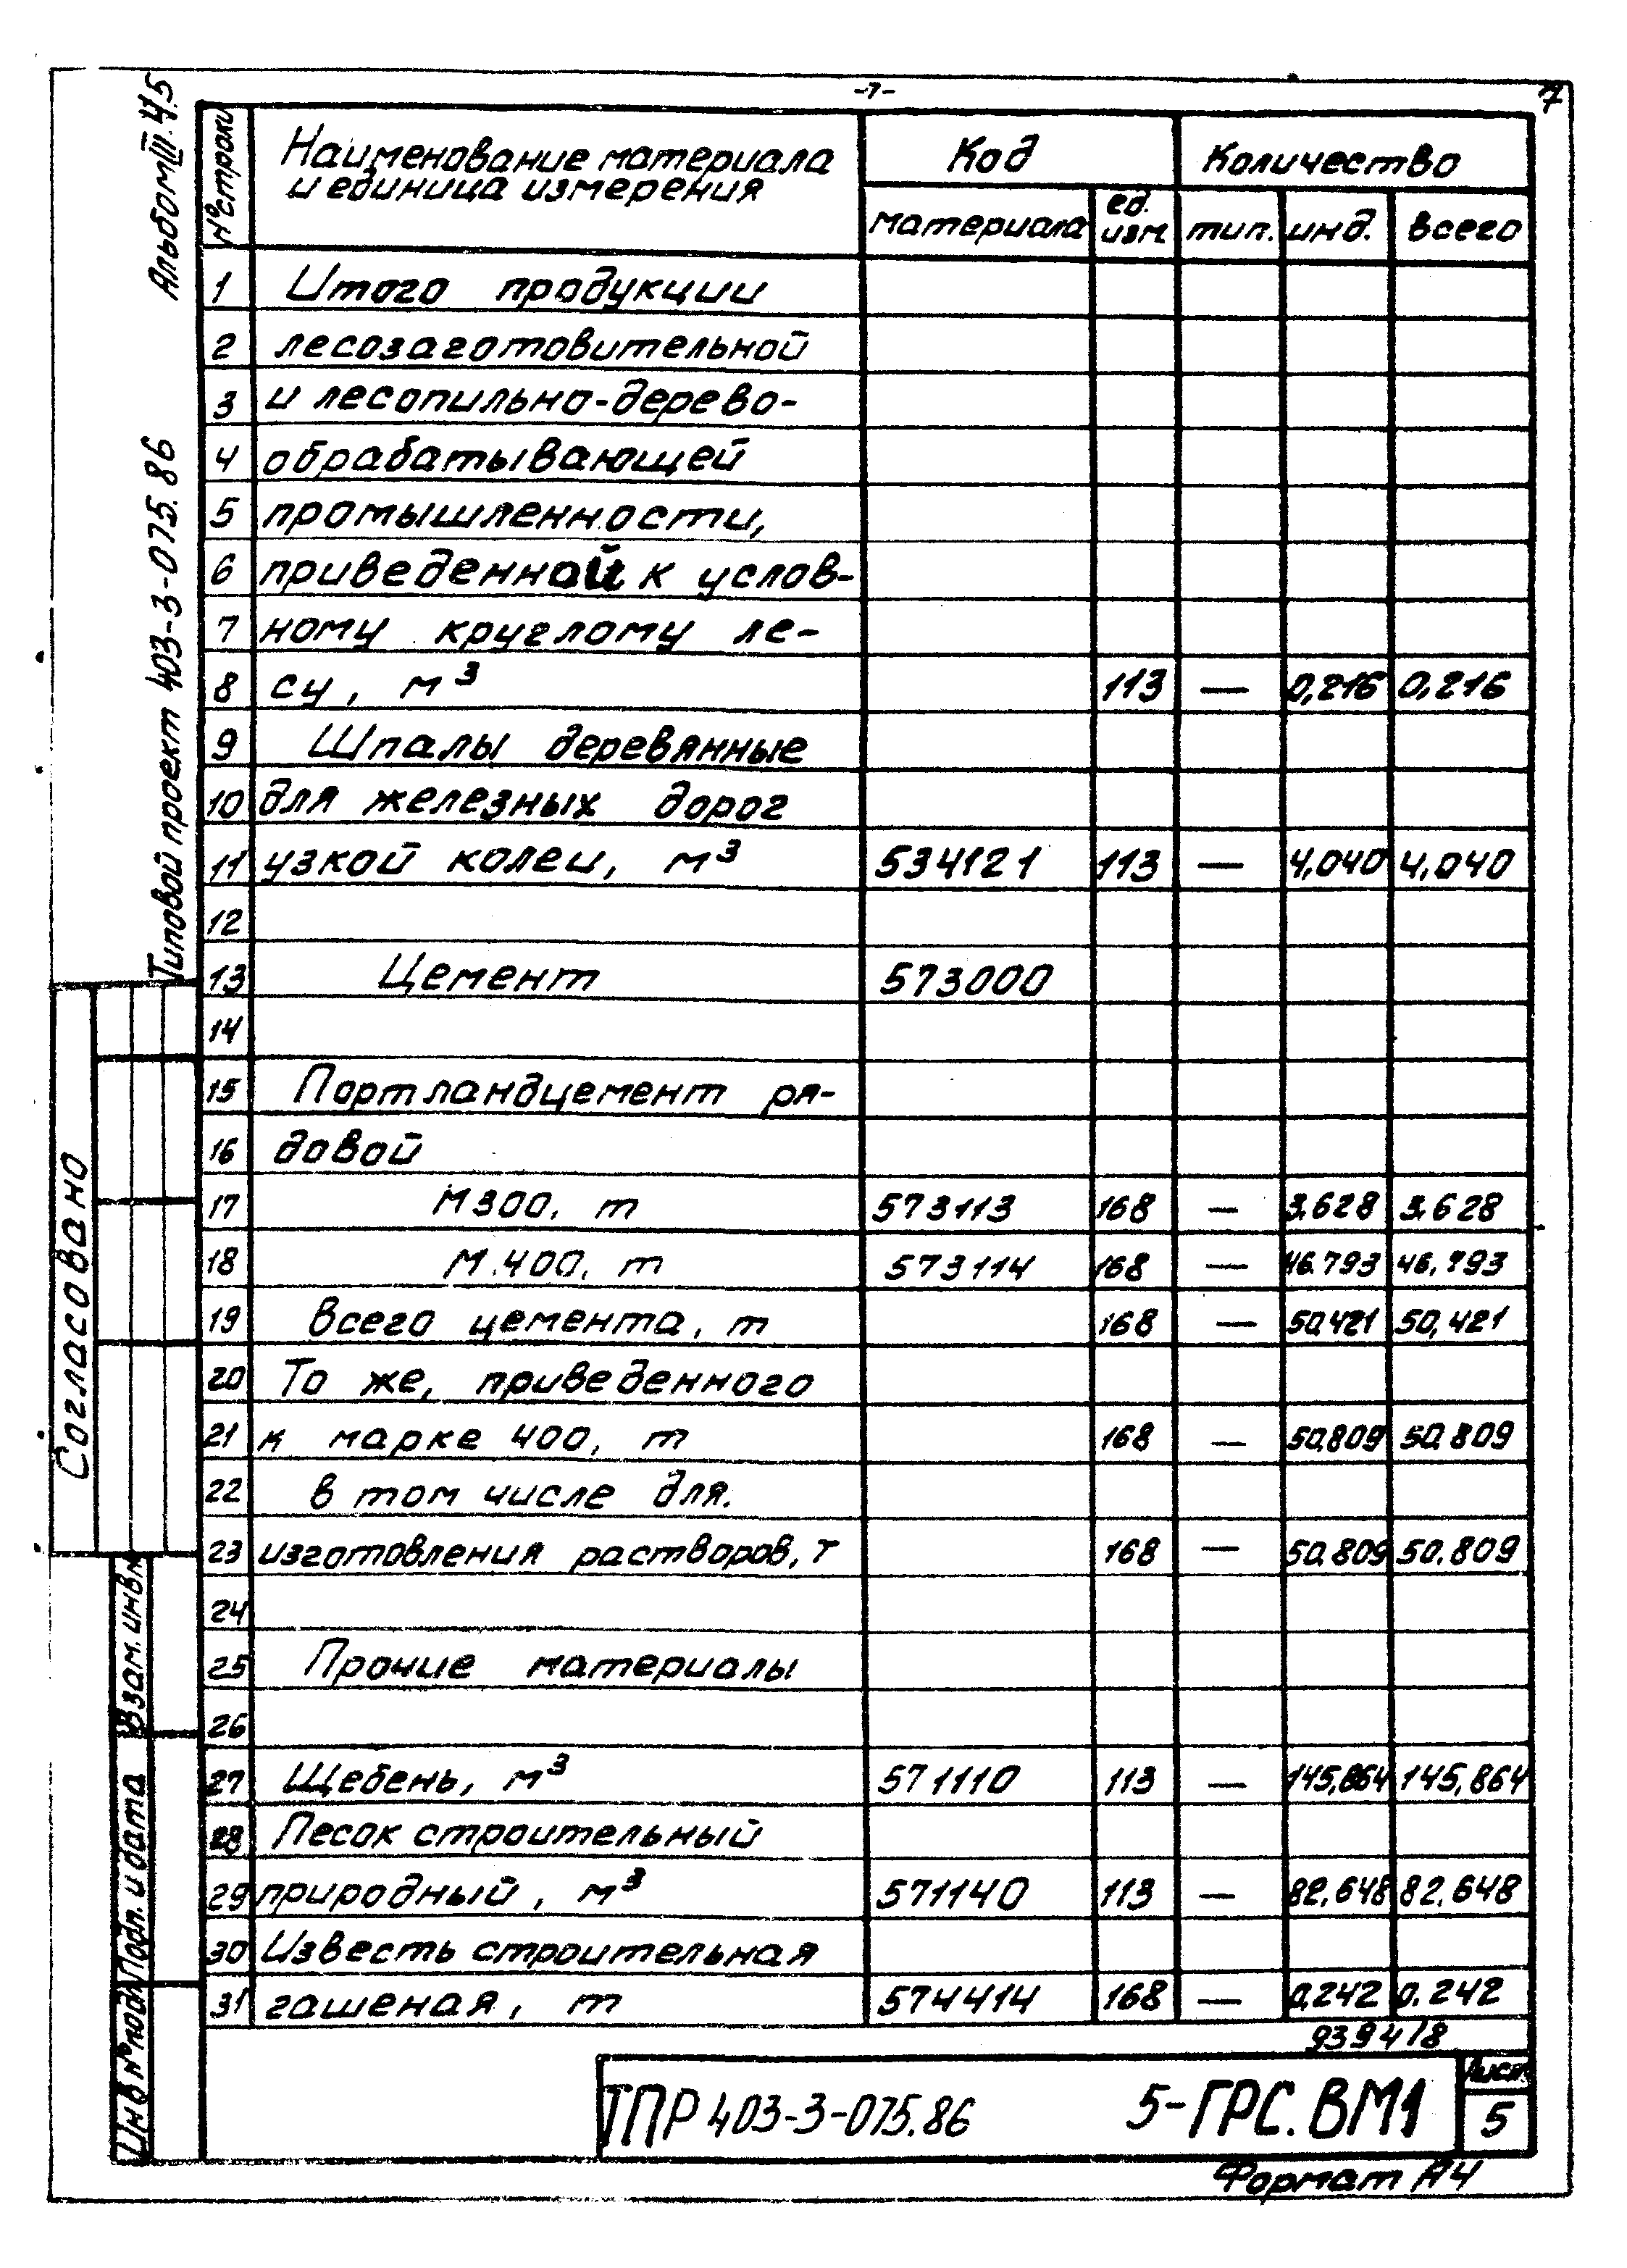 -7-
7
Альбом III ч.5
Типовой проект 403-3-075.86
Согласовано
Взам. инв.№
Подп. и дата
Инв № подл
№ строки | Наименование материала и единица измерения | Код | Количество
материала | ед. изм. | тип. | инд. | всего
1 Итого продукции
2 лесозаготовительной
3 и лесопильно-дерево-
4 обрабатывающей
5 промышленности,
6 приведенной к услов-
7 ному круглому ле-
8 су, м³ 113 — 0,216 0,216
9 Шпалы деревянные
10 для железных дорог
11 узкой колеи, м³ 534121 113 — 4,040 4,040
12
13 Цемент 573000
14
15 Портландцемент ря-
16 довой
17 М300, т 573113 168 — 3.628 3.628
18 М.400, т 573114 168 — 46.793 46,793
19 Всего цемента, т 168 — 50,421 50,421
20 То же, приведенного
21 к марке 400, т 168 — 50,809 50.809
22 в том числе для.
23 изготовления растворов, т 168 — 50.809 50.809
24
25 Прочие материалы
26
27 Щебень, м³ 571110 113 — 145,864 145,864
28 Песок строительный
29 природный, м³ 571140 113 — 82,648 82.648
30 Известь строительная
31 гашеная, т 574414 168 — 0,242 0.242
9394/8
ТПР 403-3-075.86 5-ГРС.ВМ1
Лист
5
Формат А4